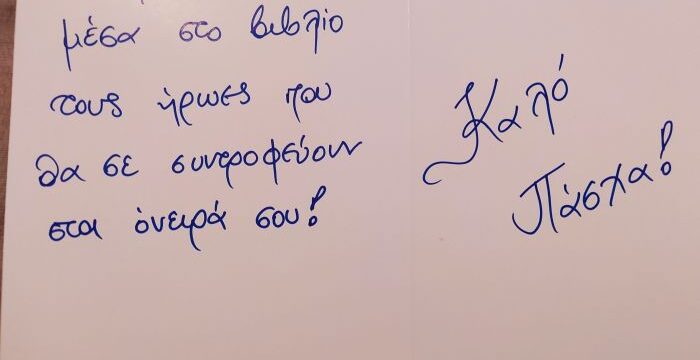 μέσα στο βιβλίο
τους ήρωες που
θα σε συντροφεύουν
στα όνειρά σου!
Καλό
Πάσχα!